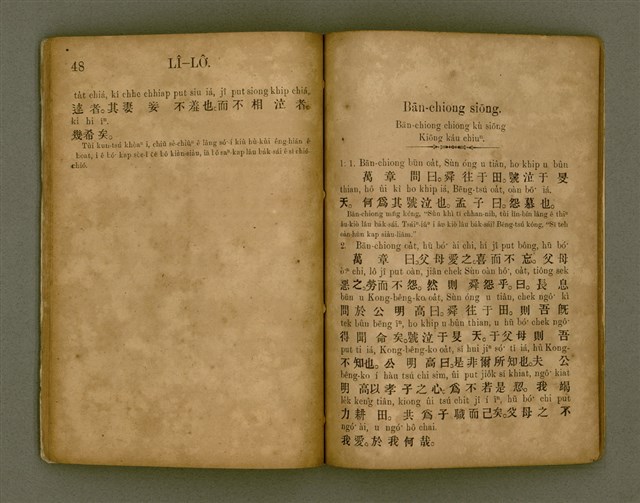 48
LÎ-LÔ.
ta̍t chiá, kî chhe chhiap put siu iá, jî put siong khip chhá,
達者。其妻妾不羞也而不相泣者。
ki hi îⁿ.
幾希矣。
hoat, i ê bó͘ kap sio-î ê bô kiàn-siàu, iā bô saⁿ-kap láu ba̍k-sái ê sī chió
chió.
Bān-chiong siōng.
Bān-chiong chiong kù siōng
Kiōng káu chiuⁿ.
1: 1. Bān-chiong būn oa̍t, Sùn óng u tiân, ho khip u bûn
萬章問曰。舜往于田。號泣于旻
thian, hô ûi kî ho khip iá, Bēng-tsú oa̍t, oàn bō͘ iá.
天。何爲其號泣也。孟子曰。怨慕也。
Bān-chiong mn̄g kóng, “Sùn khì tī chhan-nih, tùi lín-bín lâng ê thiⁿ
âu-kiò láu ba̍k-sái. Tsáiⁿ-iūⁿ i âu-kiò láu ba̍k-sái? Bēng-tsú kóng, “Sī teh
oàn-hūn kap siàu-liām.”
2. Bān-chiong oa̍t, hū bó͘ ài chi, hí jî put bōng, hū bó͘
萬章曰。父母愛之。喜而不忘。父母
ò͘ⁿ chi, lô jî put oàn, jiân chek Sùn oàn hô͘, oa̍t, tiông sek
惡之。勞而不怨。然則舜怨乎。曰。長息
būn u Kong-bêng-ko, oa̍t, Sùn óng u tiân, chek ngô͘ kì
問於公明高曰。舜往于田。則吾旣
tek bûn bēng îⁿ, ho khip u bûn thian, u hū bó͘ chek ngô͘
得聞命矣。號泣于旻天。于父母則吾
put ti iá, Kong-bêng-ko oa̍t, sī hui jíⁿ só͘ ti iá, hû Kong-
不知也。公明高曰。是非爾所知也。夫公
bêng-ko í hàu tsú chi sim, ûi put jio̍k sī khiat, ngô͘ kiat
明高以孝子之心。爲不若是恝。我竭
le̍k keng tiân, kiong ûi tsú chit jî í îⁿ, hū bó͘ chi put
力耕田。共爲子職而已矣。父母之不
ngó͘ ài, u ngó͘ hô chai.
我愛。於我何哉。